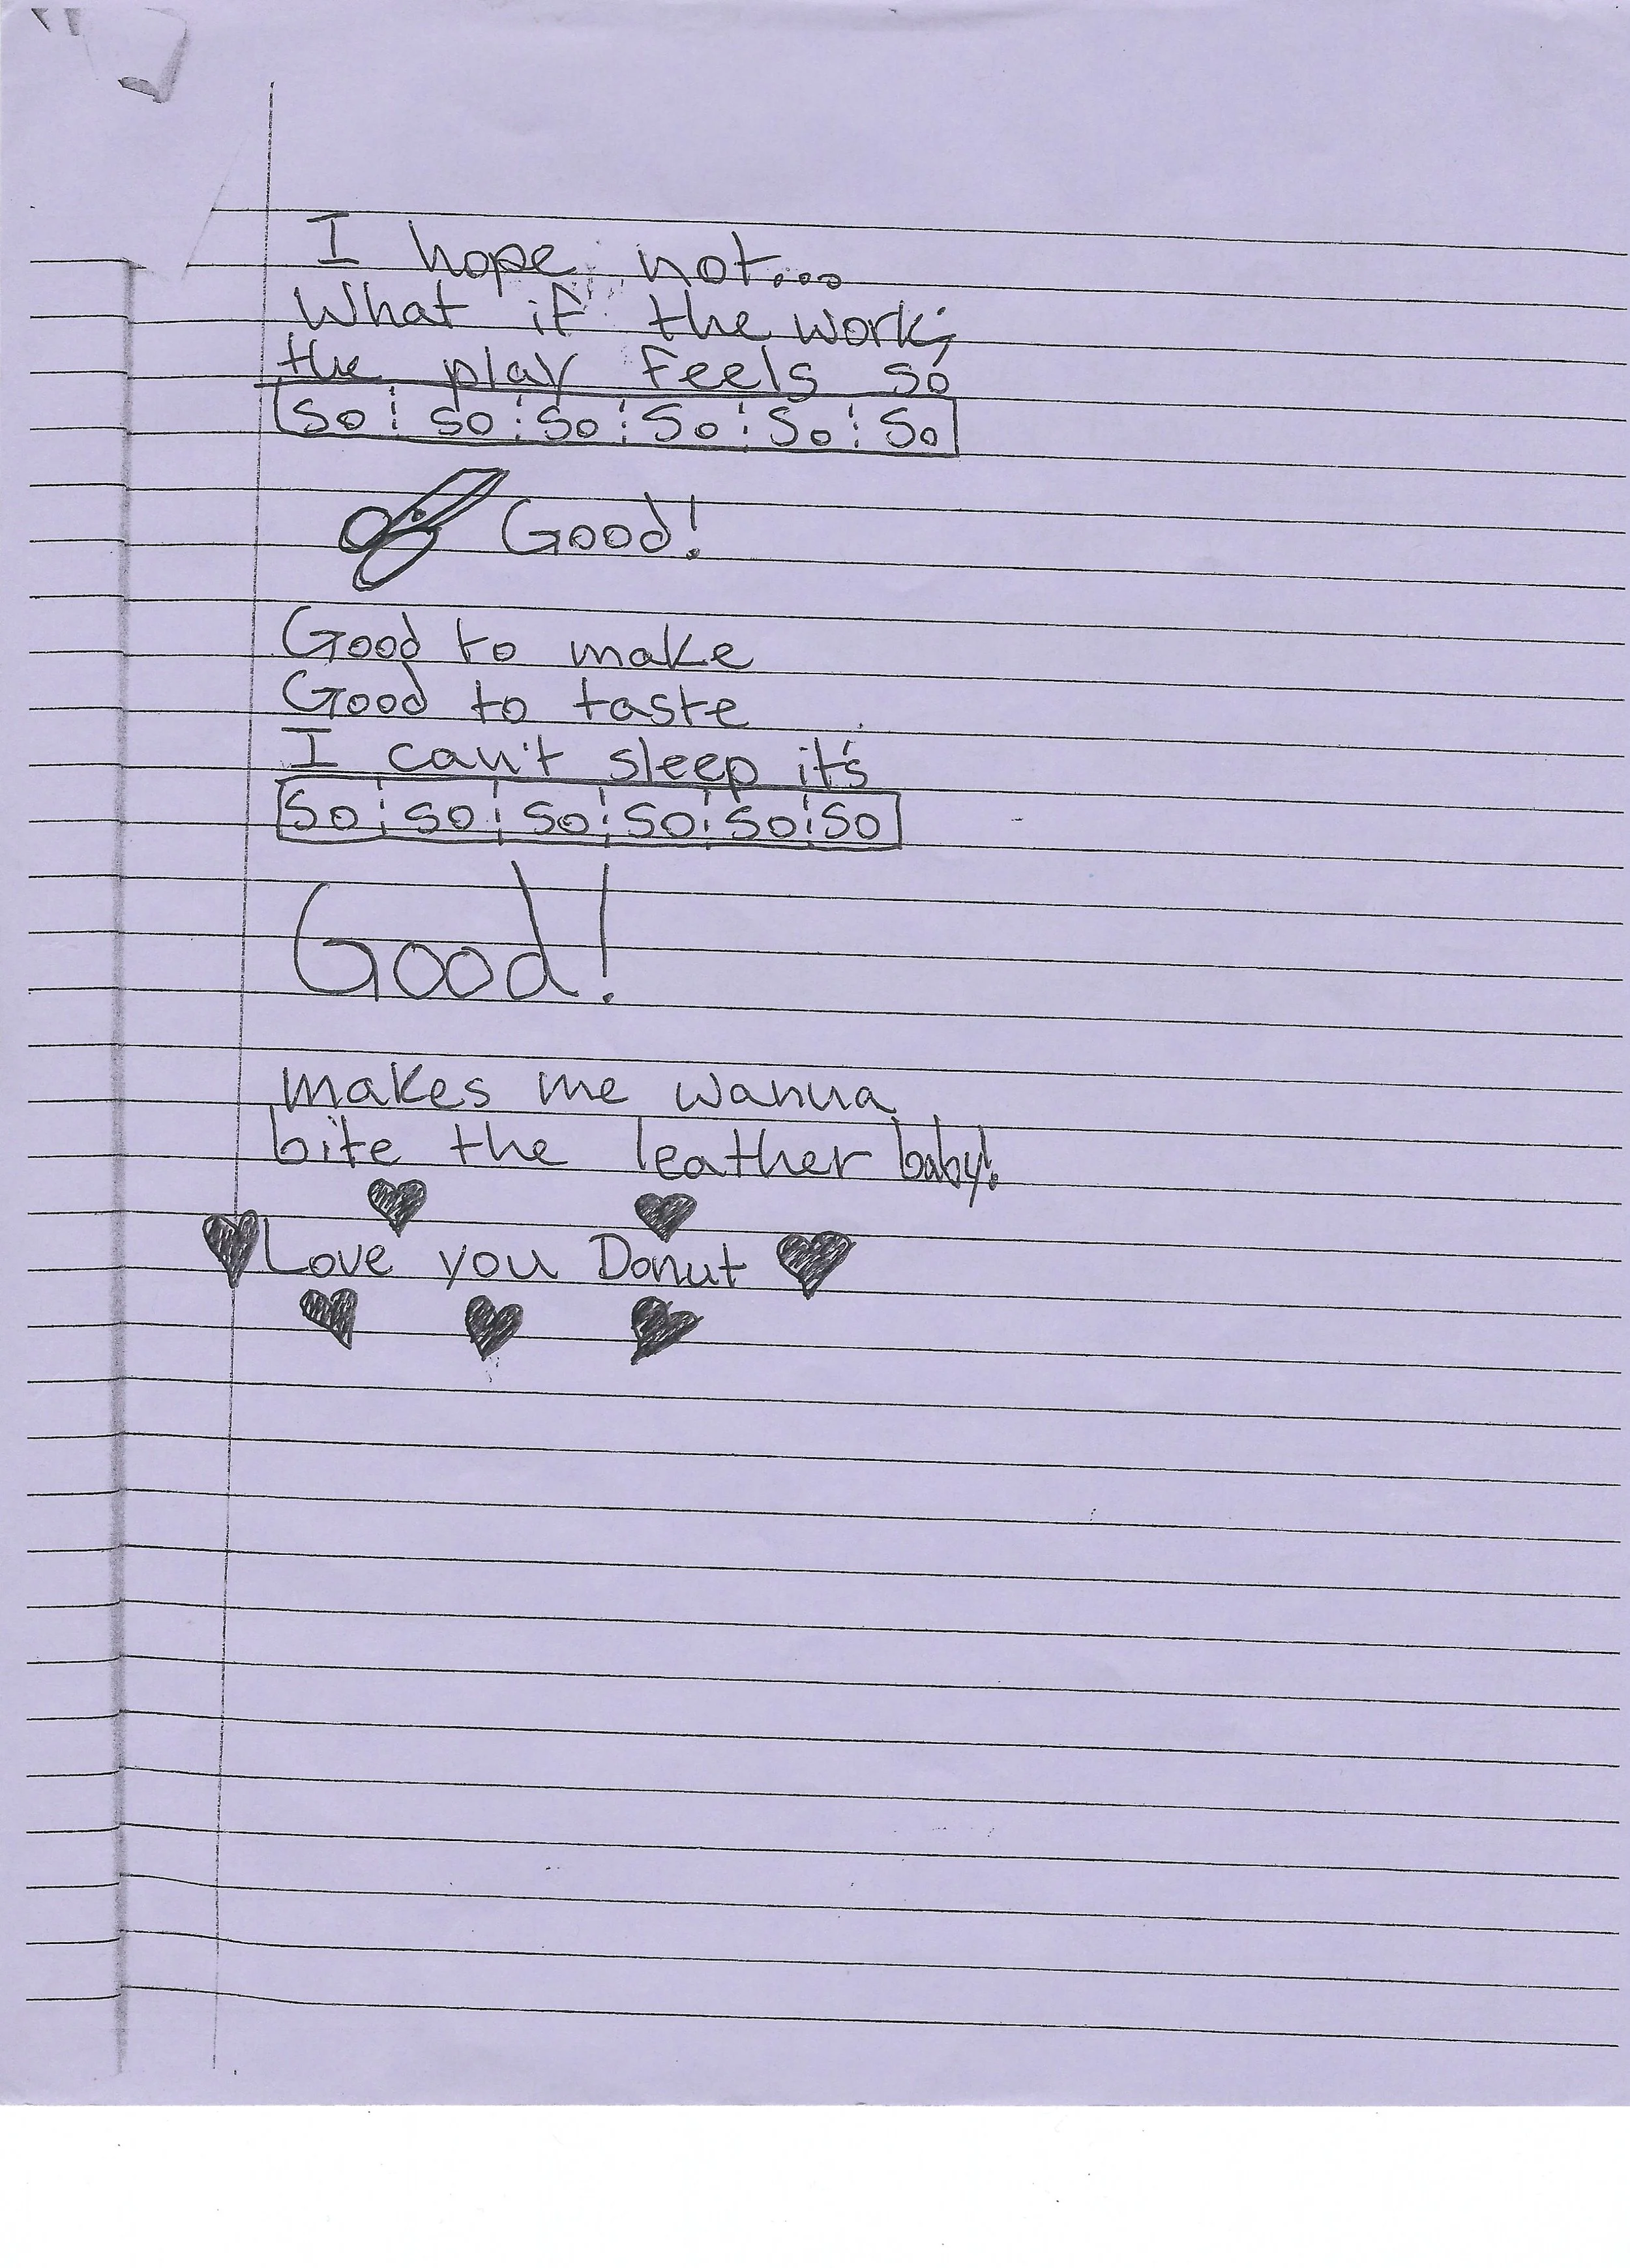 I hope not...
What if the work;
the play feels so
So So So So So So
Good!
Good to make
Good to taste
I can't sleep it's
So So So So So So
Good!
makes me wanna
bite the leather baby!
Love you Donut